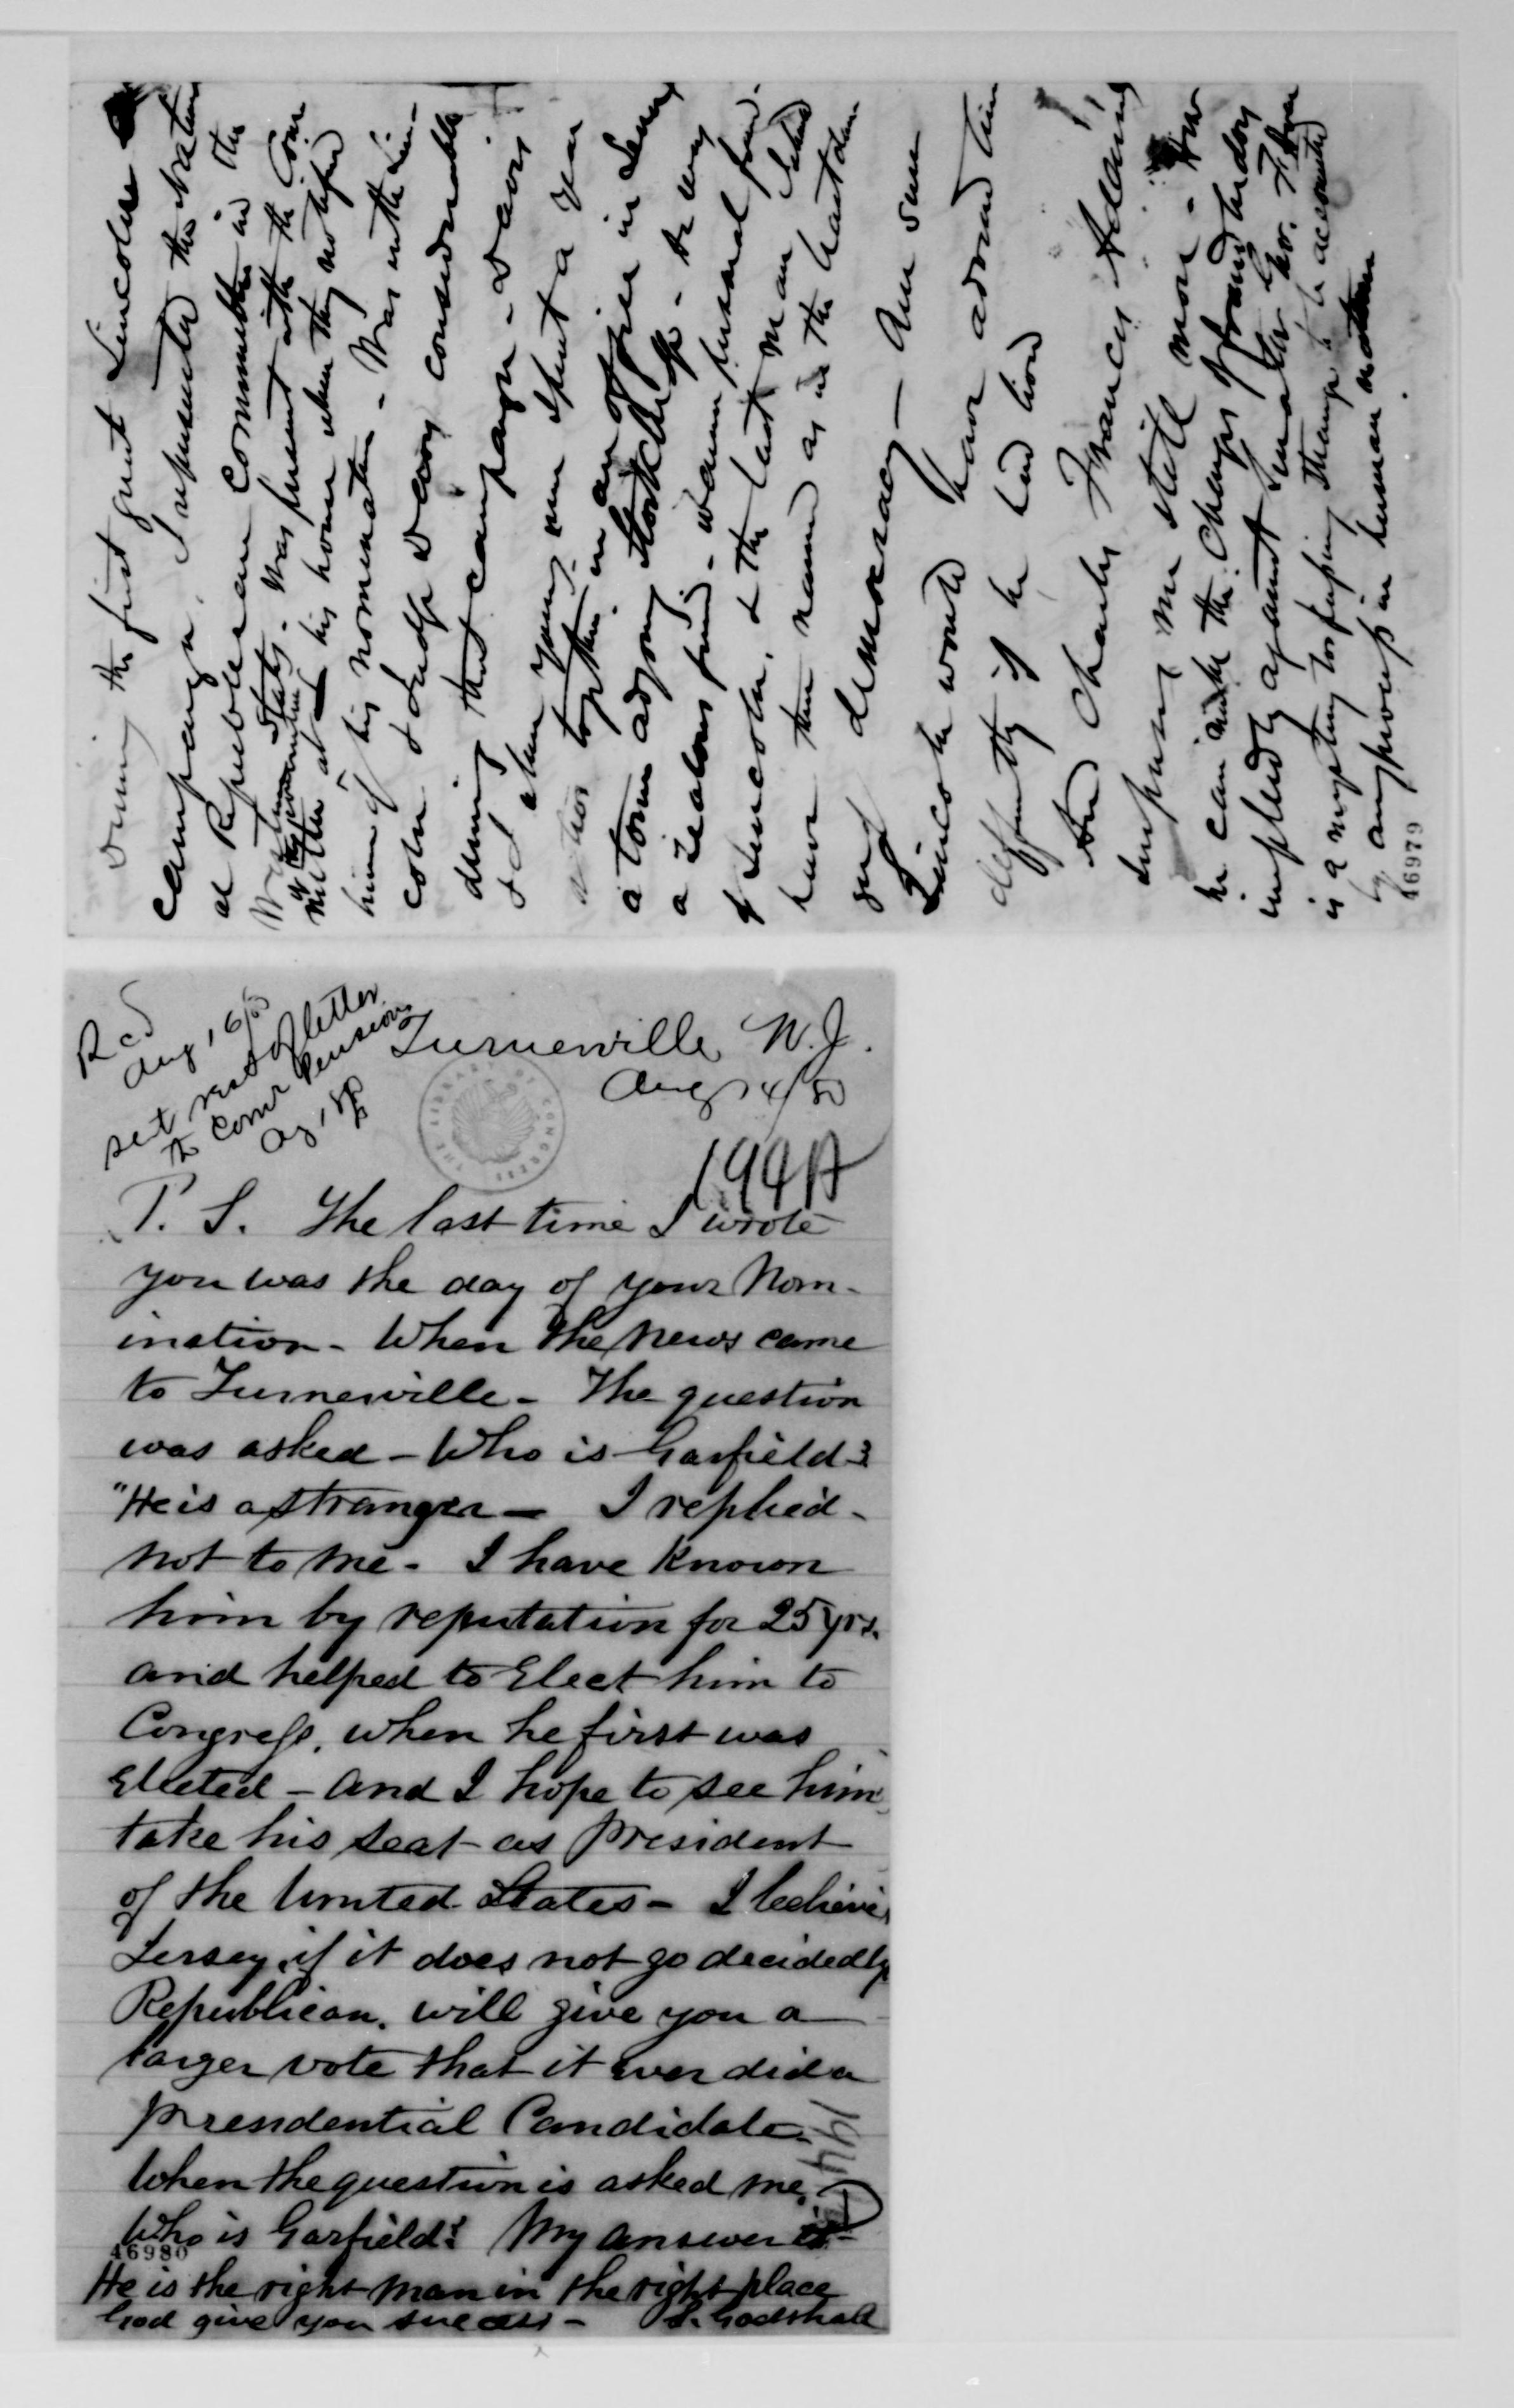 During the first great Lincoln
campaign, I represented the National
Republican Committee in the
Western States. Was present with the Com
mittee at his home when they notified
him of his nomination - Was with Lin-
coln & Judge Davis considerable
during that campaign - Davis
& I when young men spent a year
together in an office in Lenox
a town adjoining Stockbridge - he was
a zealous friend - warm personal friend
of Lincoln, & the last man I should
have then named as in the
democracy - Am sure
Lincoln would have advised him
differently if he had lived
And Charles Francis Adams
surprises me still more - how
he can make the charges of fraud he does
impliedly against Senator
is a mystery surpassing strange to be accounted
by any process in human nature
46979
Rcd
Aug 16/80
sent rest of letter
to Comr Pensions
Ag 18/80
Turnerville N.J.
Aug 14/80
THE LIBRARY OF CONGRESS
194A
P. S. The last time I wrote
you was the day of your Nom-
ination - When the News came
to Turnerville - The question
was asked - Who is Garfield?
"He is a stranger - I replied -
not to me - I have Known
him by reputation for 25 yrs.
and helped to Elect him to
Congress, when he first was
Elected - and I hope to see him
take his seat as President
of the United States - I believe
Jersey, if it does not go decidedly
Republican, will give you a
larger vote that it ever did a
presidential Candidate.
When the question is asked me,
Who is Garfield? My answer is -
46980
He is the right man in the right place
God give you success - S. Godshall
194